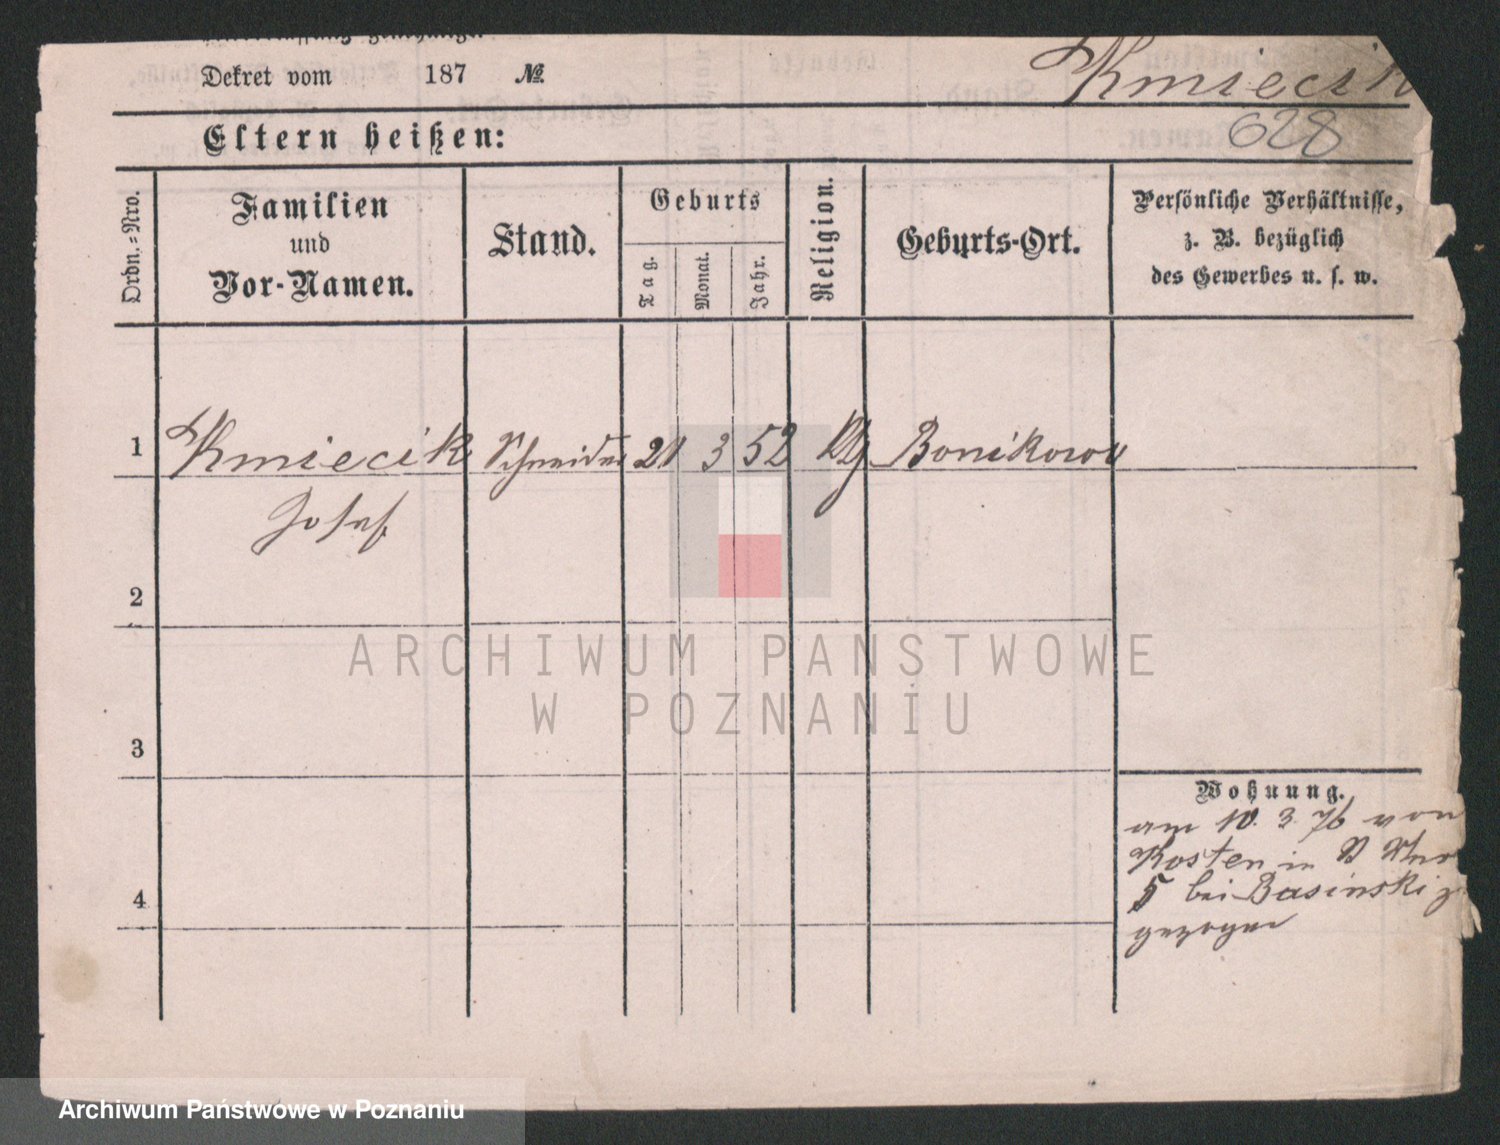 Dekret vom 187 №
Kmiecik
628
Eltern heißen:
Ordn.=Nro.
Familien
und
Vor-Namen.
Stand.
Geburts
Tag.
Monat.
Jahr.
Religion.
Geburts-Ort.
Persönliche Verhältnisse,
z. B. bezüglich
des Gewerbes u. s. w.
1 Kmiecik Schneider 21 3 52 Bonikowo
Josef
2
3
4
Wohnung.
am 10. 3. 76 von
Kosten in
5 bei Basinski
gezogen
ARCHIWUM PANSTWOWE
W POZNANIU
Archiwum Państwowe w Poznaniu